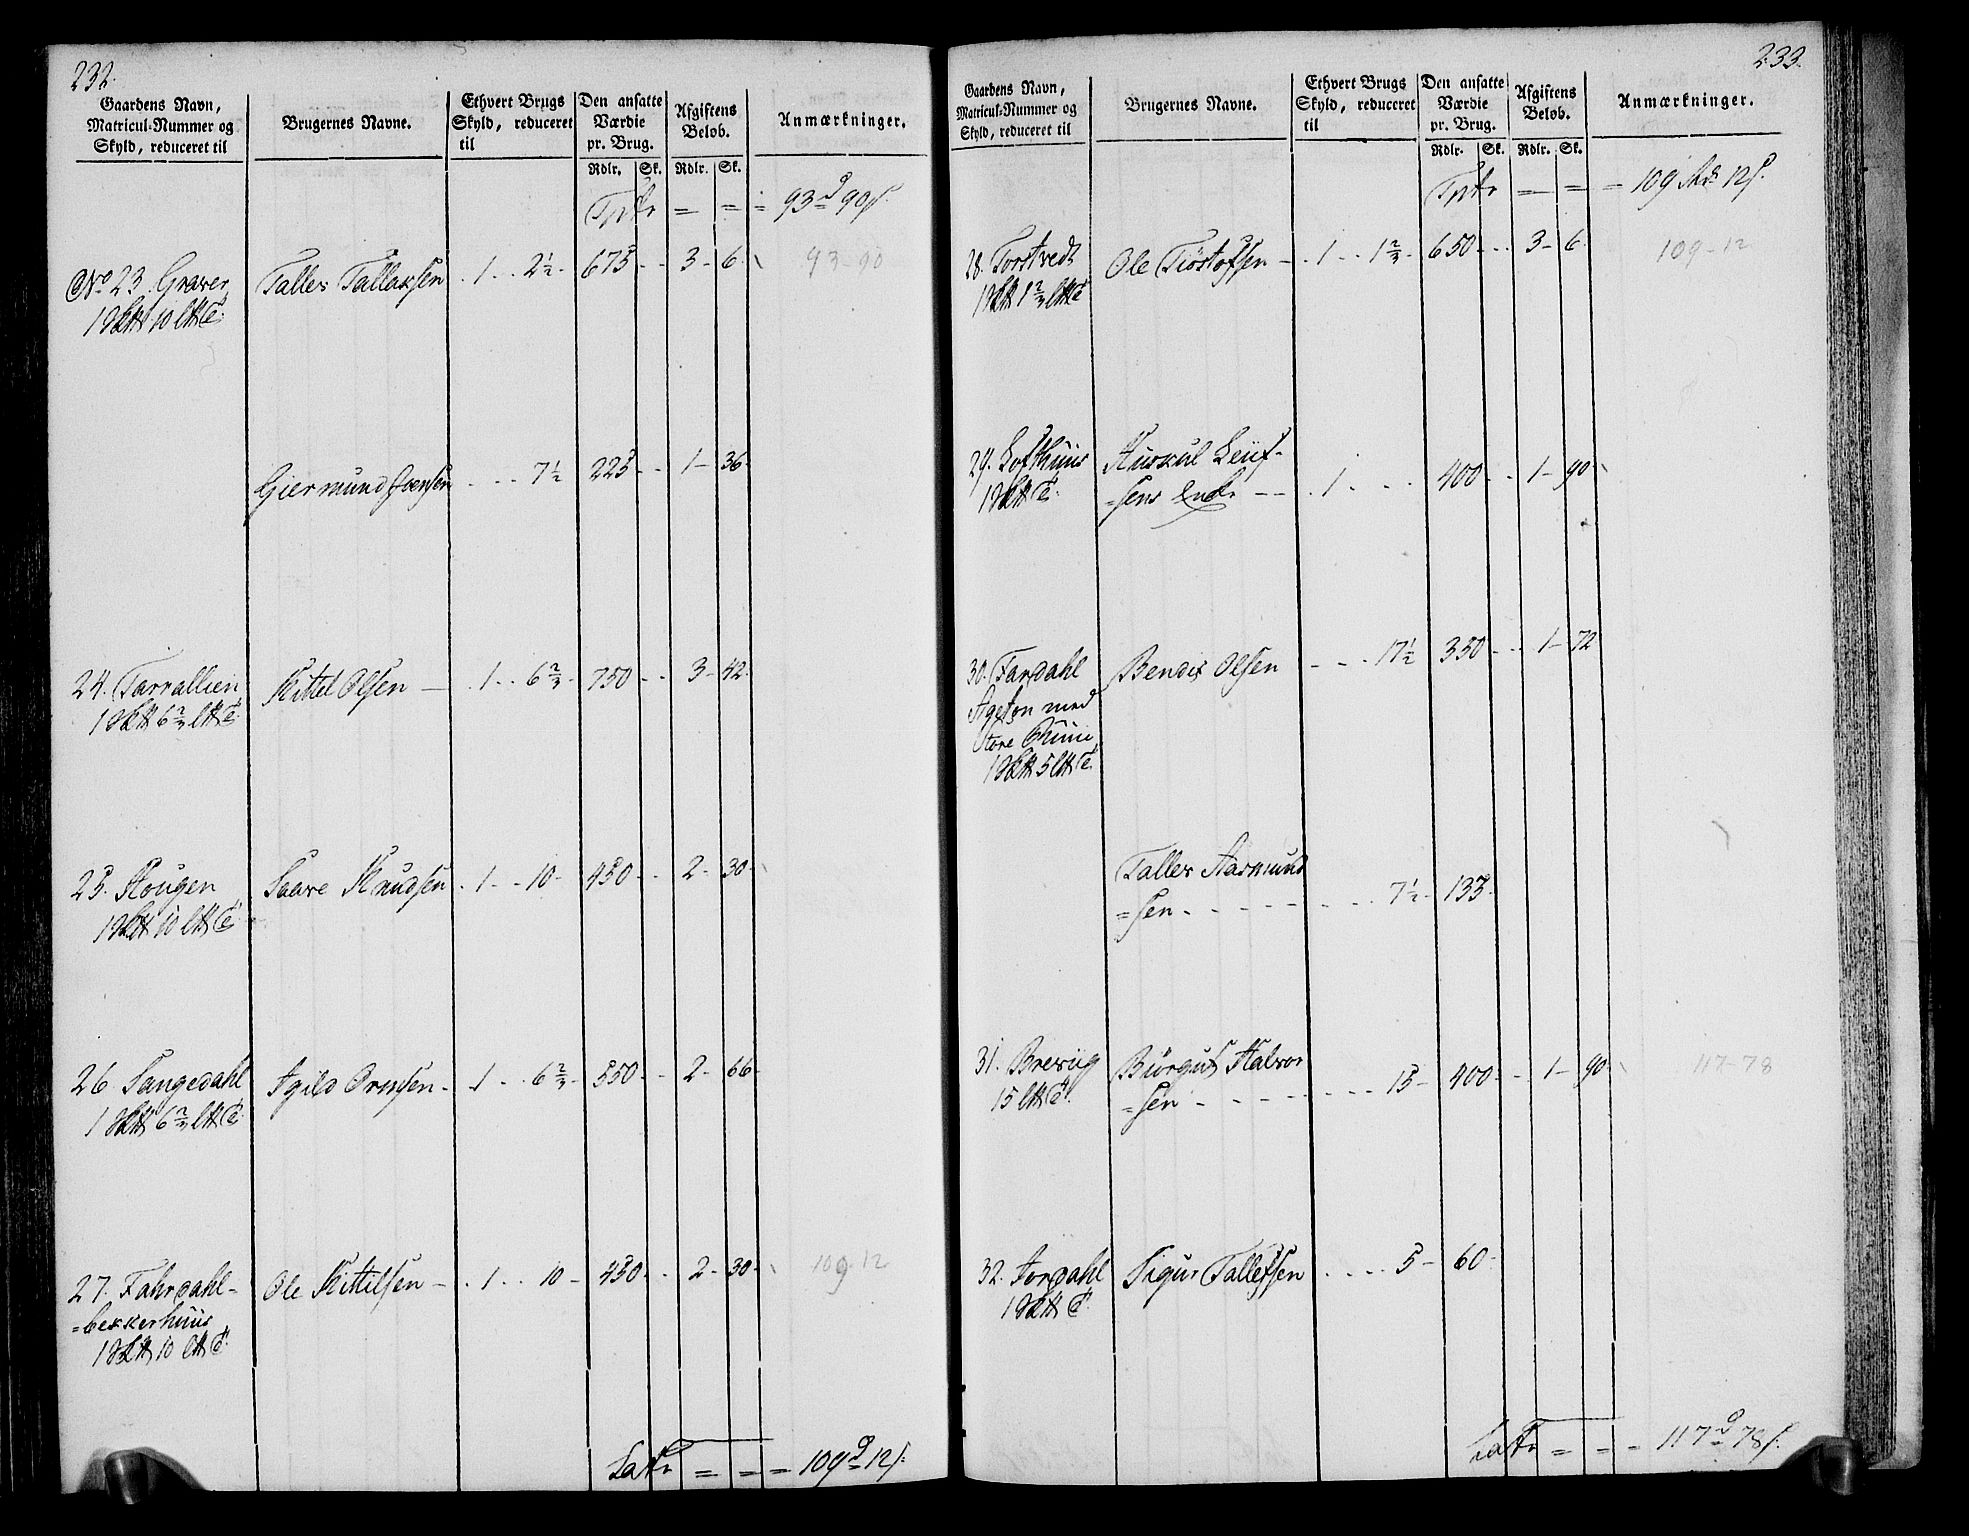 232.
Gaardens Navn,
Matricul-Nummer og
Skyld, reduceret til
Brugernes Navne.
Ethvert Brugs
Skyld, reduceret
til
Den ansatte
Værdie
pr. Brug.
Afgiftens
Beløb.
Anmærkninger.
Rdlr. Sk. Rdlr. Sk.
Tptr = = = 93 d 90 s.
No 23. Graver, Tallev Tallaksen . 1 . . 2½ - 675 - - 3 - 6. 93-90
1 10
Giermund Joensen . . . 7½ 225 - - 1 - 36.
24. Tarrallien Kittel Olsen — . 1 . . 6⅔ - 750 - - 3 - 42.
1 6⅔
25. Hougen Saave Knudsen . 1 . . 10 - 450 - - 2 - 30.
1 10
26 Langedahl Egild Ormsen - . 1 . . 6⅔ - 550 - - 2 - 66.
1 6⅔
27. Fahrdahl- Ole Kittilsen — . 1 . . 10 - 450 - - 2 - 30. 109.12
=bekkerhuus
1 10
Latr = = = 109 d 12 s.
233.
Gaardens Navn,
Matricul-Nummer og
Skyld, reduceret til
Brugernes Navne.
Ethvert Brugs
Skyld, reduceret
til
Den ansatte
Værdie
pr. Brug.
Afgiftens
Beløb.
Anmærkninger.
Rdlr. Sk. Rdlr. Sk.
Tptr = = = 109 12 s.
28. Torstvedt Ole Tiöstofsen - . 1 . . 1⅔ - 650 - - 3 - 6. 109-12
1 1⅔
29. Lofthuus Auskul Leuf-
1
=sens Enke — . 1 . . . 400 - - 1 - 90
30. Fardahl Bendix Olsen - - - 17½ 350 - - 1 - 72
med
store
1 5
Tallev Aasmund
=sen - - - - - - - 7½ - 133.
31. Brevig Biörgul Halvor
15
=sen - - - - - - - 15 - 400 - - 1 - 90 117-78
32. Jordahl Sigur Tallefsen . . . . 5 - 60.
1
Latr = = = 117 d 78 s.